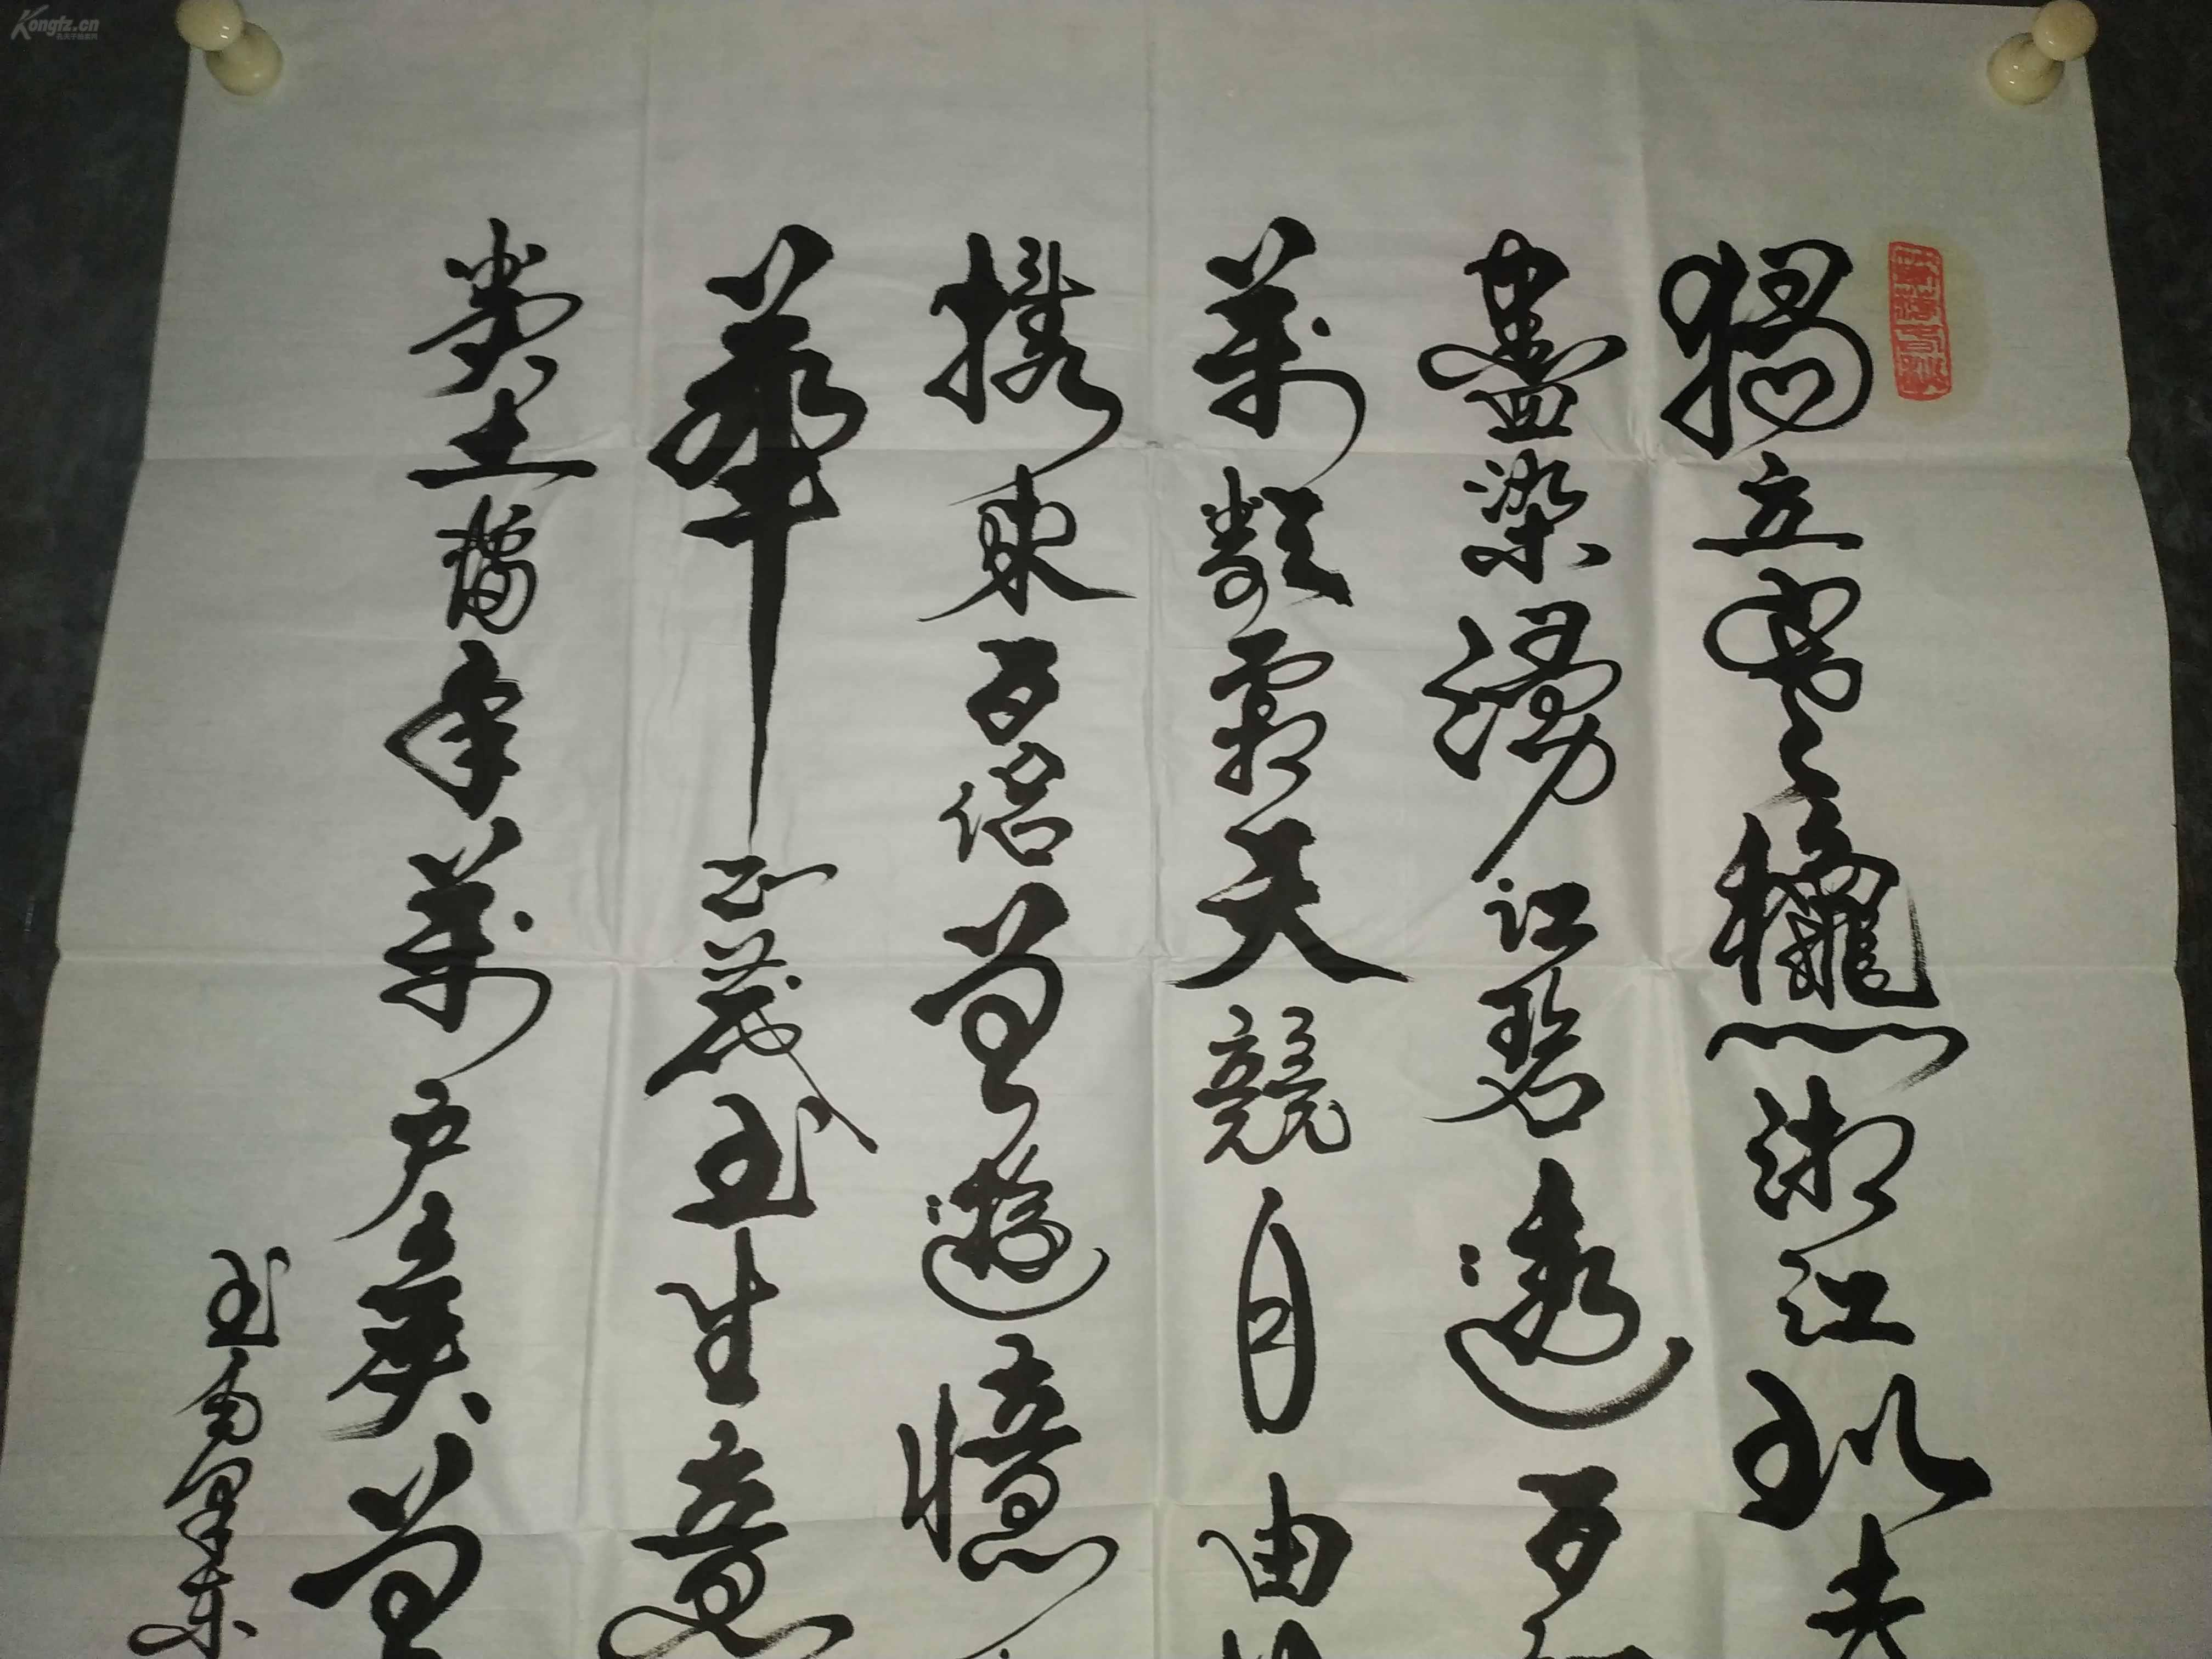 Kongfz.cn
獨立寒龝湘江北去
盡染漫江碧透百
萬類霜天競自由
攜來百侶曾遊憶
華正茂書生意
糞土當年萬户矦曾
書毛澤東